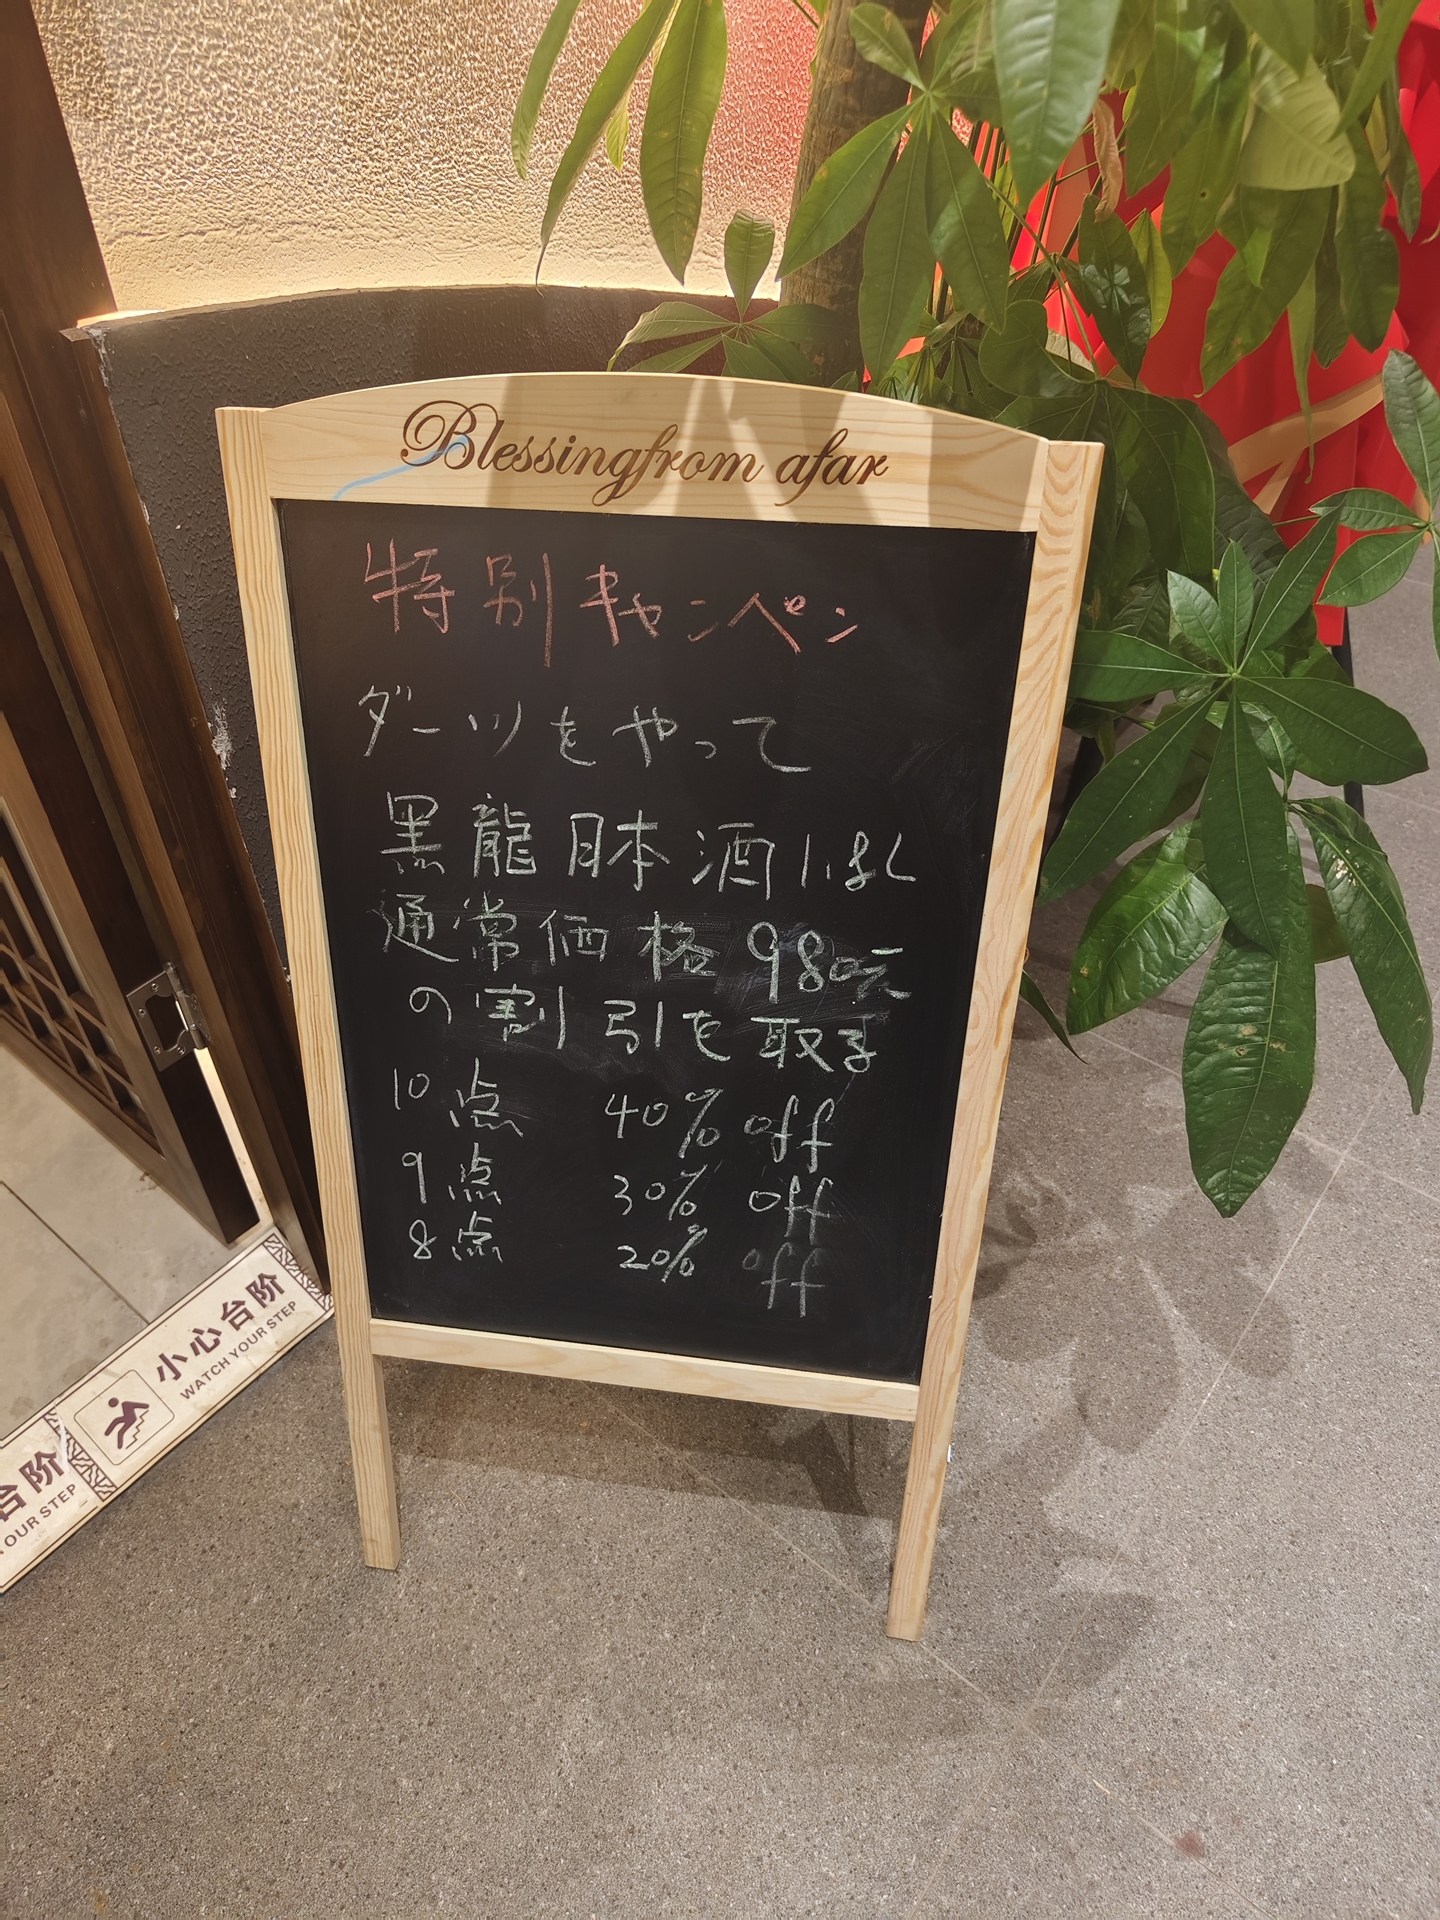 Blessingfrom afar
特別キャンペン
ダーツをやって
黒龍日本酒1.8L
通常価格980元
の割引を取る
10点 40% off
9点 30% off
8点 20% off
小心台阶
WATCH YOUR STEP
台阶
OUR STEP